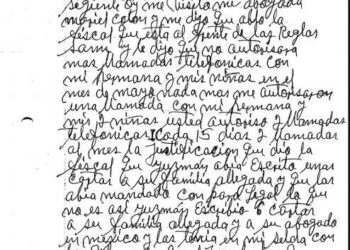 seguiente oy me visito me abogada
maricl colon y me dijo que ablo la
fiscal que esta al frente de las Reglas
Sam y le dijo que no autorisara
mas llamadas telefonicas con
mi hermana y mis niñas en el
mes de mayo nada mas me autorisaron
una llamada con mi hermana y
mis 2 niñas usted autoriso 2 llamadas
telefonicas Cada 15 dias 2 llamadas
al mes la Justificacion que dio la
fiscal que guzmán abia Escrito unas
cartas a su familia allegada y que las
abia mandado con para legal la que
no es asi guzmán Escribio 6 cartas
a su familia allegada y a su abogado
en mexico y las tenia en mi selda con